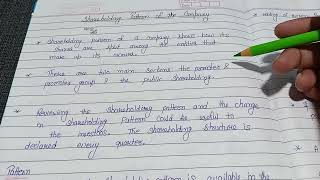 Shareholding Pattern of the Company
* Shareholding pattern of a company shows how its
shares are split among the entities that
make up its owners.
* There are two main sections the promoter &
promoter group & the public shareholding.
* Reviewing the shareholding pattern and the change
in shareholding pattern could be useful to
the investors. The shareholding structure is
declared every quarter.
Pattern
pattern is available in the